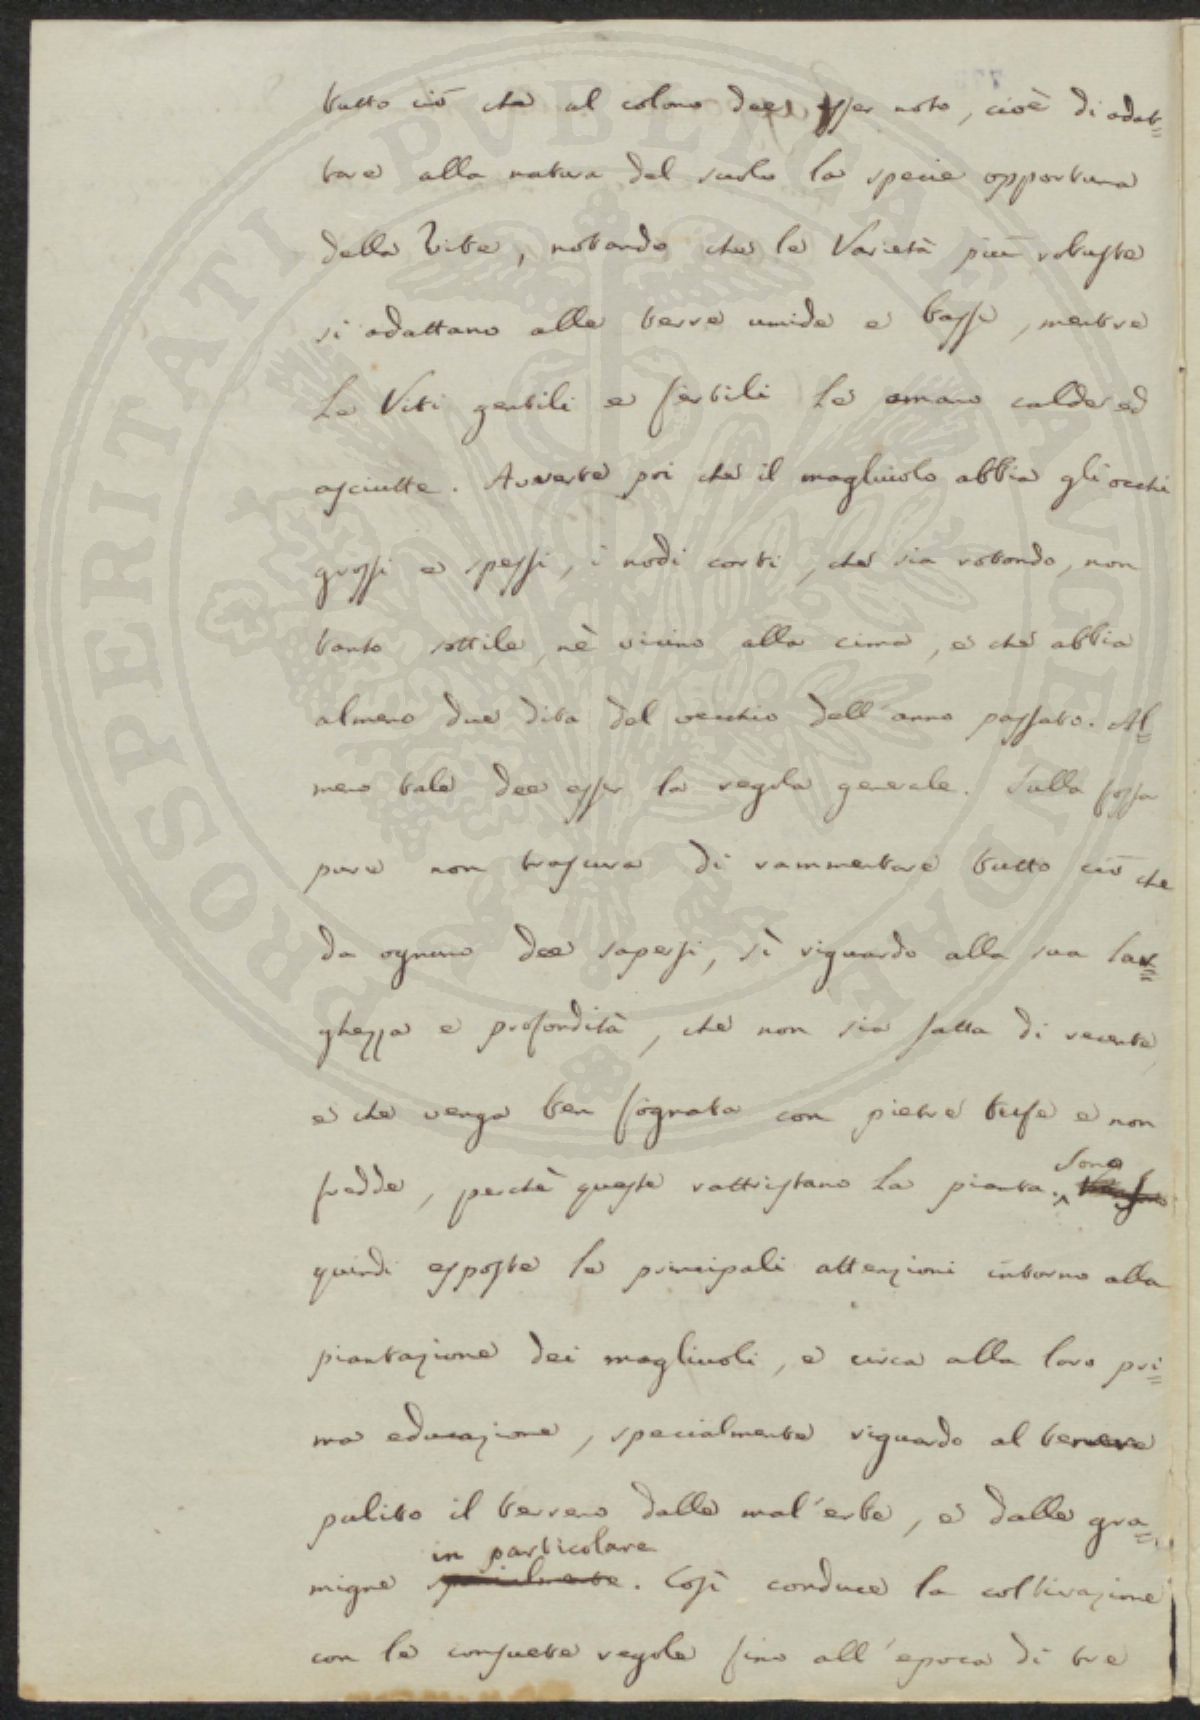 tutto ciò che al colono dee esser noto, cioè di adat=
tare alla natura del suolo la specie opportuna
della Vite, notando che le Varietà più robuste
si adattano alle terre umide e basse, mentre
Le Viti gentili e fertili Le amano calde ed
asciutte. Avverte poi che il magliuolo abbia gli occhi
grossi e spessi, i nodi corti, che sia rotondo, non
tanto sottile, nè vicino alla cima, e che abbia
almeno due dita del vecchio dell'anno passato. Al=
meno tale dee esser la regola generale. Sulla fossa
pure non trascura di rammentare tutto ciò che
da ognuno dee sapersi, sì riguardo alla sua lar=
ghezza e profondità, che non sia fatta di recente,
e che venga ben fognata con pietre tufe e non
fredde, perchè queste rattristano La pianta. Sono
quindi esposte le principali attenzioni intorno alla
piantazione dei magliuoli, e circa alla loro pri=
ma educazione, specialmente riguardo al tenere
pulito il terreno dalle mal'erbe, e dalle gra=
in particolare
migne specialmente. Così conduce la coltivazione
con le consuete regole fino all'epoca di tre
PROSPERITATI PUBLICAE AUGENDAE